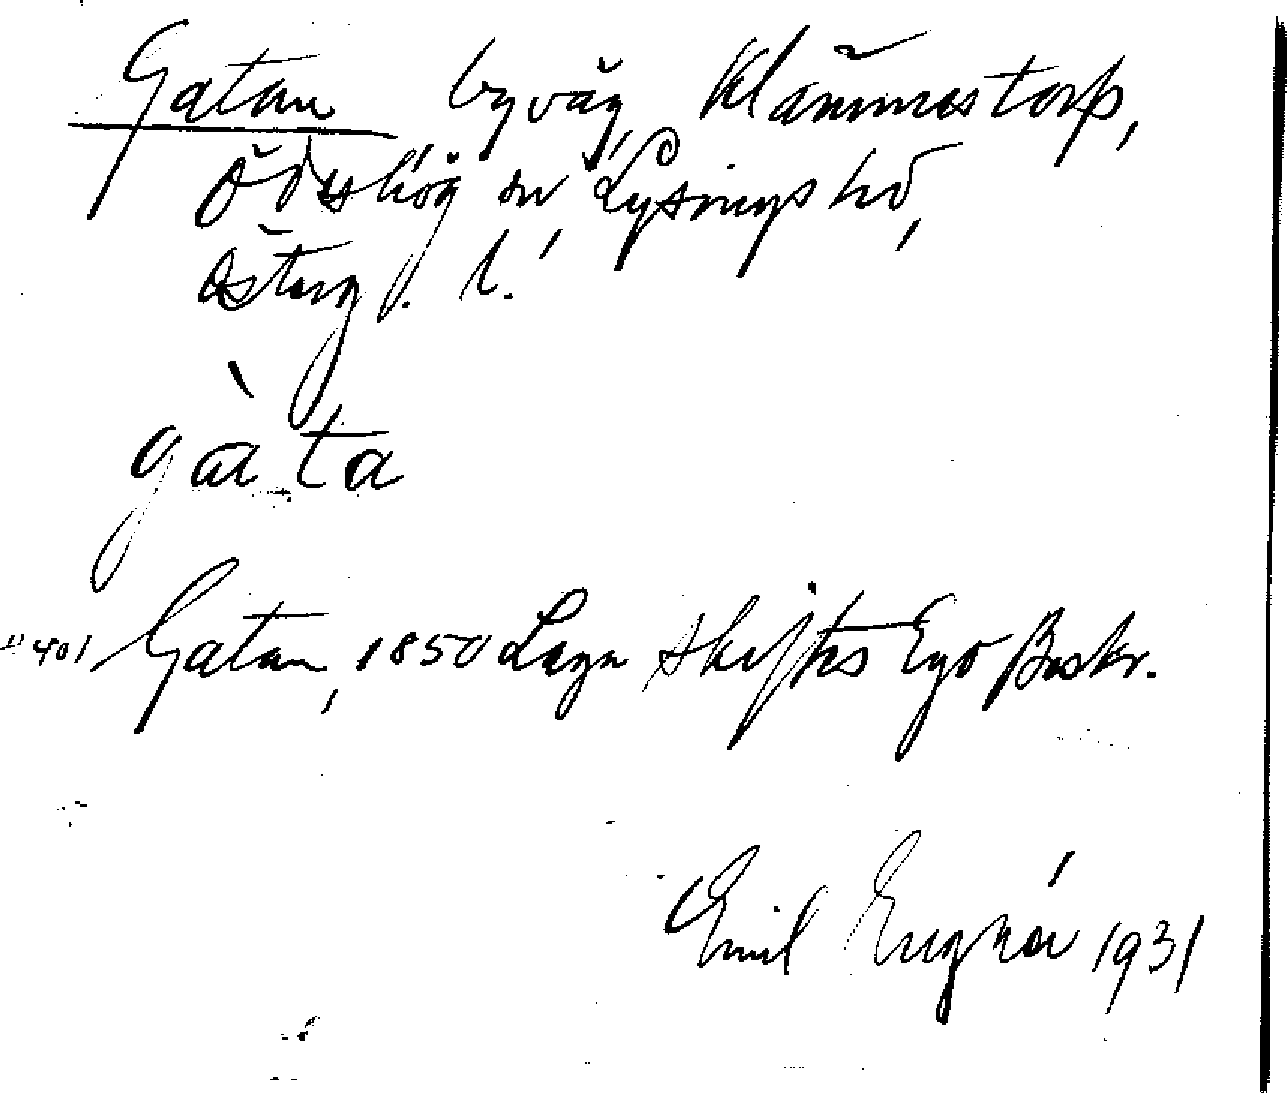 Gatan byväg, Klämmestorp,
Ödeshög sn, Lysings hd,
Österg. l.
gàta
401 Gatan, 1850 Laga skiftes Ego Beskr.
Emil 1931